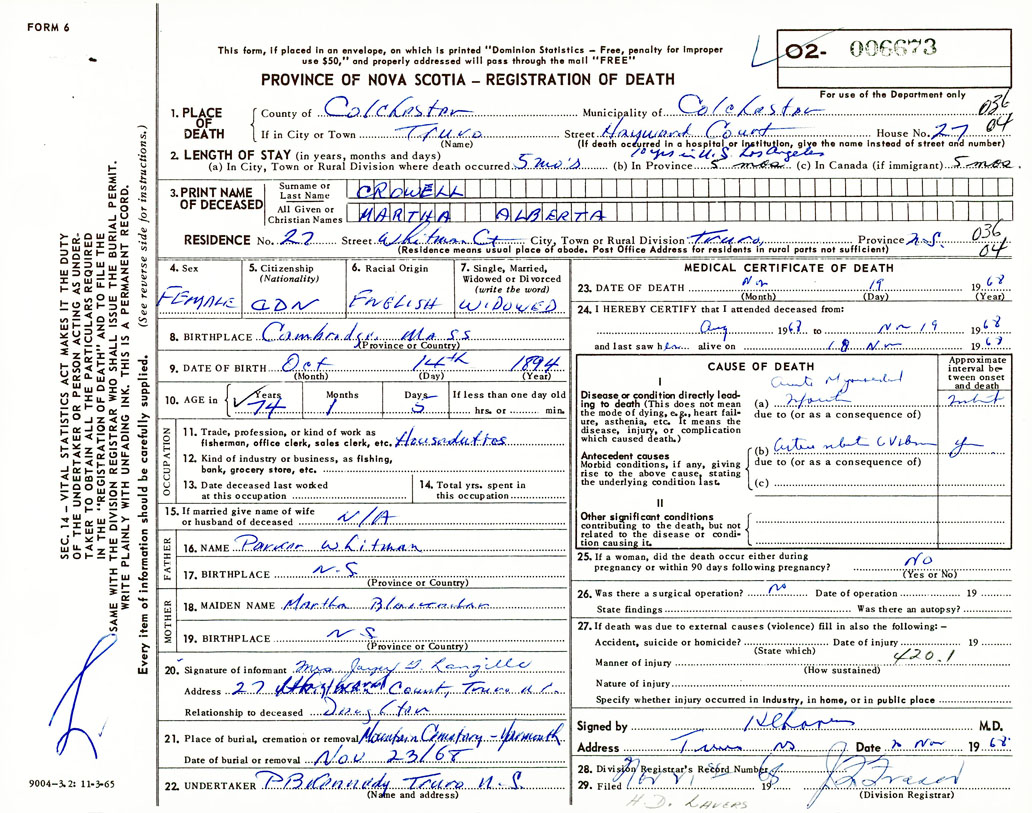 FORM 6
This form, if placed in an envelope, on which is printed "Dominion Statistics – Free, penalty for improper
use $50," and properly addressed will pass through the mail "FREE"
O2- 006673
PROVINCE OF NOVA SCOTIA – REGISTRATION OF DEATH
For use of the Department only
036
04
1. PLACE OF DEATH
County of Colchester Municipality of Colchester
If in City or Town Truro Street Hayward Court House No. 27
(Name) (If death occurred in a hospital or institution, give the name instead of street and number)
10 yrs in U.S. Los Angeles
2. LENGTH OF STAY (in years, months and days)
(a) In City, Town or Rural Division where death occurred 5 mo's (b) In Province 5 mos (c) In Canada (if immigrant) 5 mos.
3. PRINT NAME OF DECEASED
Surname or Last Name CROWELL
All Given or Christian Names MARTHA ALBERTA
RESIDENCE No. 27 Street Whitman Ct City, Town or Rural Division Truro, Province N.S.
(Residence means usual place of abode. Post Office Address for residents in rural parts not sufficient)
036
04
4. Sex FEMALE
5. Citizenship (Nationality) CDN
6. Racial Origin ENGLISH
7. Single, Married, Widowed or Divorced (write the word) WIDOWED
8. BIRTHPLACE Cambridge, Mass
(Province or Country)
9. DATE OF BIRTH Oct 14th 1894
(Month) (Day) (Year)
10. AGE in Years 74 Months 1 Days 5 If less than one day old
hrs. or min.
OCCUPATION
11. Trade, profession, or kind of work as
fisherman, office clerk, sales clerk, etc. Houseduties
12. Kind of industry or business, as fishing,
bank, grocery store, etc.
13. Date deceased last worked
at this occupation
14. Total yrs. spent in
this occupation
15. If married give name of wife
or husband of deceased N/A
FATHER
16. NAME Parker Whitman
17. BIRTHPLACE N.S.
(Province or Country)
MOTHER
18. MAIDEN NAME Martha
19. BIRTHPLACE N S
(Province or Country)
20. Signature of informant Mrs. G Langille
Address 27 Court, Truro N.S.
Relationship to deceased Daughter
21. Place of burial, cremation or removal Mountain Cemetery – Yarmouth
Date of burial or removal Nov 23/68
22. UNDERTAKER P B Kennedy Truro N.S.
(Name and address)
MEDICAL CERTIFICATE OF DEATH
23. DATE OF DEATH Nov 19 1968
(Month) (Day) (Year)
24. I HEREBY CERTIFY that I attended deceased from:
Aug 1968 to Nov 19 1968
and last saw her alive on 18 Nov 1968
CAUSE OF DEATH
Approximate interval between onset and death
I
Disease or condition directly leading to death (This does not mean
the mode of dying, e.g., heart failure, asthenia, etc. It means the
disease, injury, or complication
which caused death.)
(a) Acute Myocardial
Infarct
due to (or as a consequence of)
Antecedent causes
Morbid conditions, if any, giving
rise to the above cause, stating
the underlying condition last.
(b)
due to (or as a consequence of)
(c)
II
Other significant conditions
contributing to the death, but not
related to the disease or condition causing it.
25. If a woman, did the death occur either during
pregnancy or within 90 days following pregnancy? NO
(Yes or No)
26. Was there a surgical operation? no Date of operation 19
State findings Was there an autopsy?
27. If death was due to external causes (violence) fill in also the following: –
Accident, suicide or homicide? Date of injury 19
(State which)
420.1
Manner of injury
(How sustained)
Nature of injury
Specify whether injury occurred in Industry, in home, or in public place
Signed by M.D.
Address Truro NS Date 20 Nov 1968
28. Division Registrar's Record Number
29. Filed Nov 21st 1968
(Division Registrar)
H.D. LAVERS
SEC. 14 – VITAL STATISTICS ACT MAKES IT THE DUTY
OF THE UNDERTAKER OR PERSON ACTING AS UNDER-
TAKER TO OBTAIN ALL THE PARTICULARS REQUIRED
IN THE "REGISTRATION OF DEATH" AND TO FILE THE
SAME WITH THE DIVISION REGISTRAR WHO SHALL ISSUE THE BURIAL PERMIT.
WRITE PLAINLY WITH UNFADING INK. THIS IS A PERMANENT RECORD.
Every item of information should be carefully supplied. (See reverse side for instructions.)
9004-3.2: 11-3-65